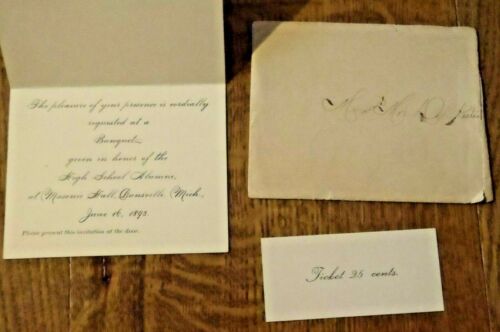 The pleasure of your presence is cordially
requested at a
Banquet
given in honor of the
High School Alumni,
at Masonic Hall, Mich.,
June 16, 1893.
Please present this invitation at the door.
Ticket 25 cents.